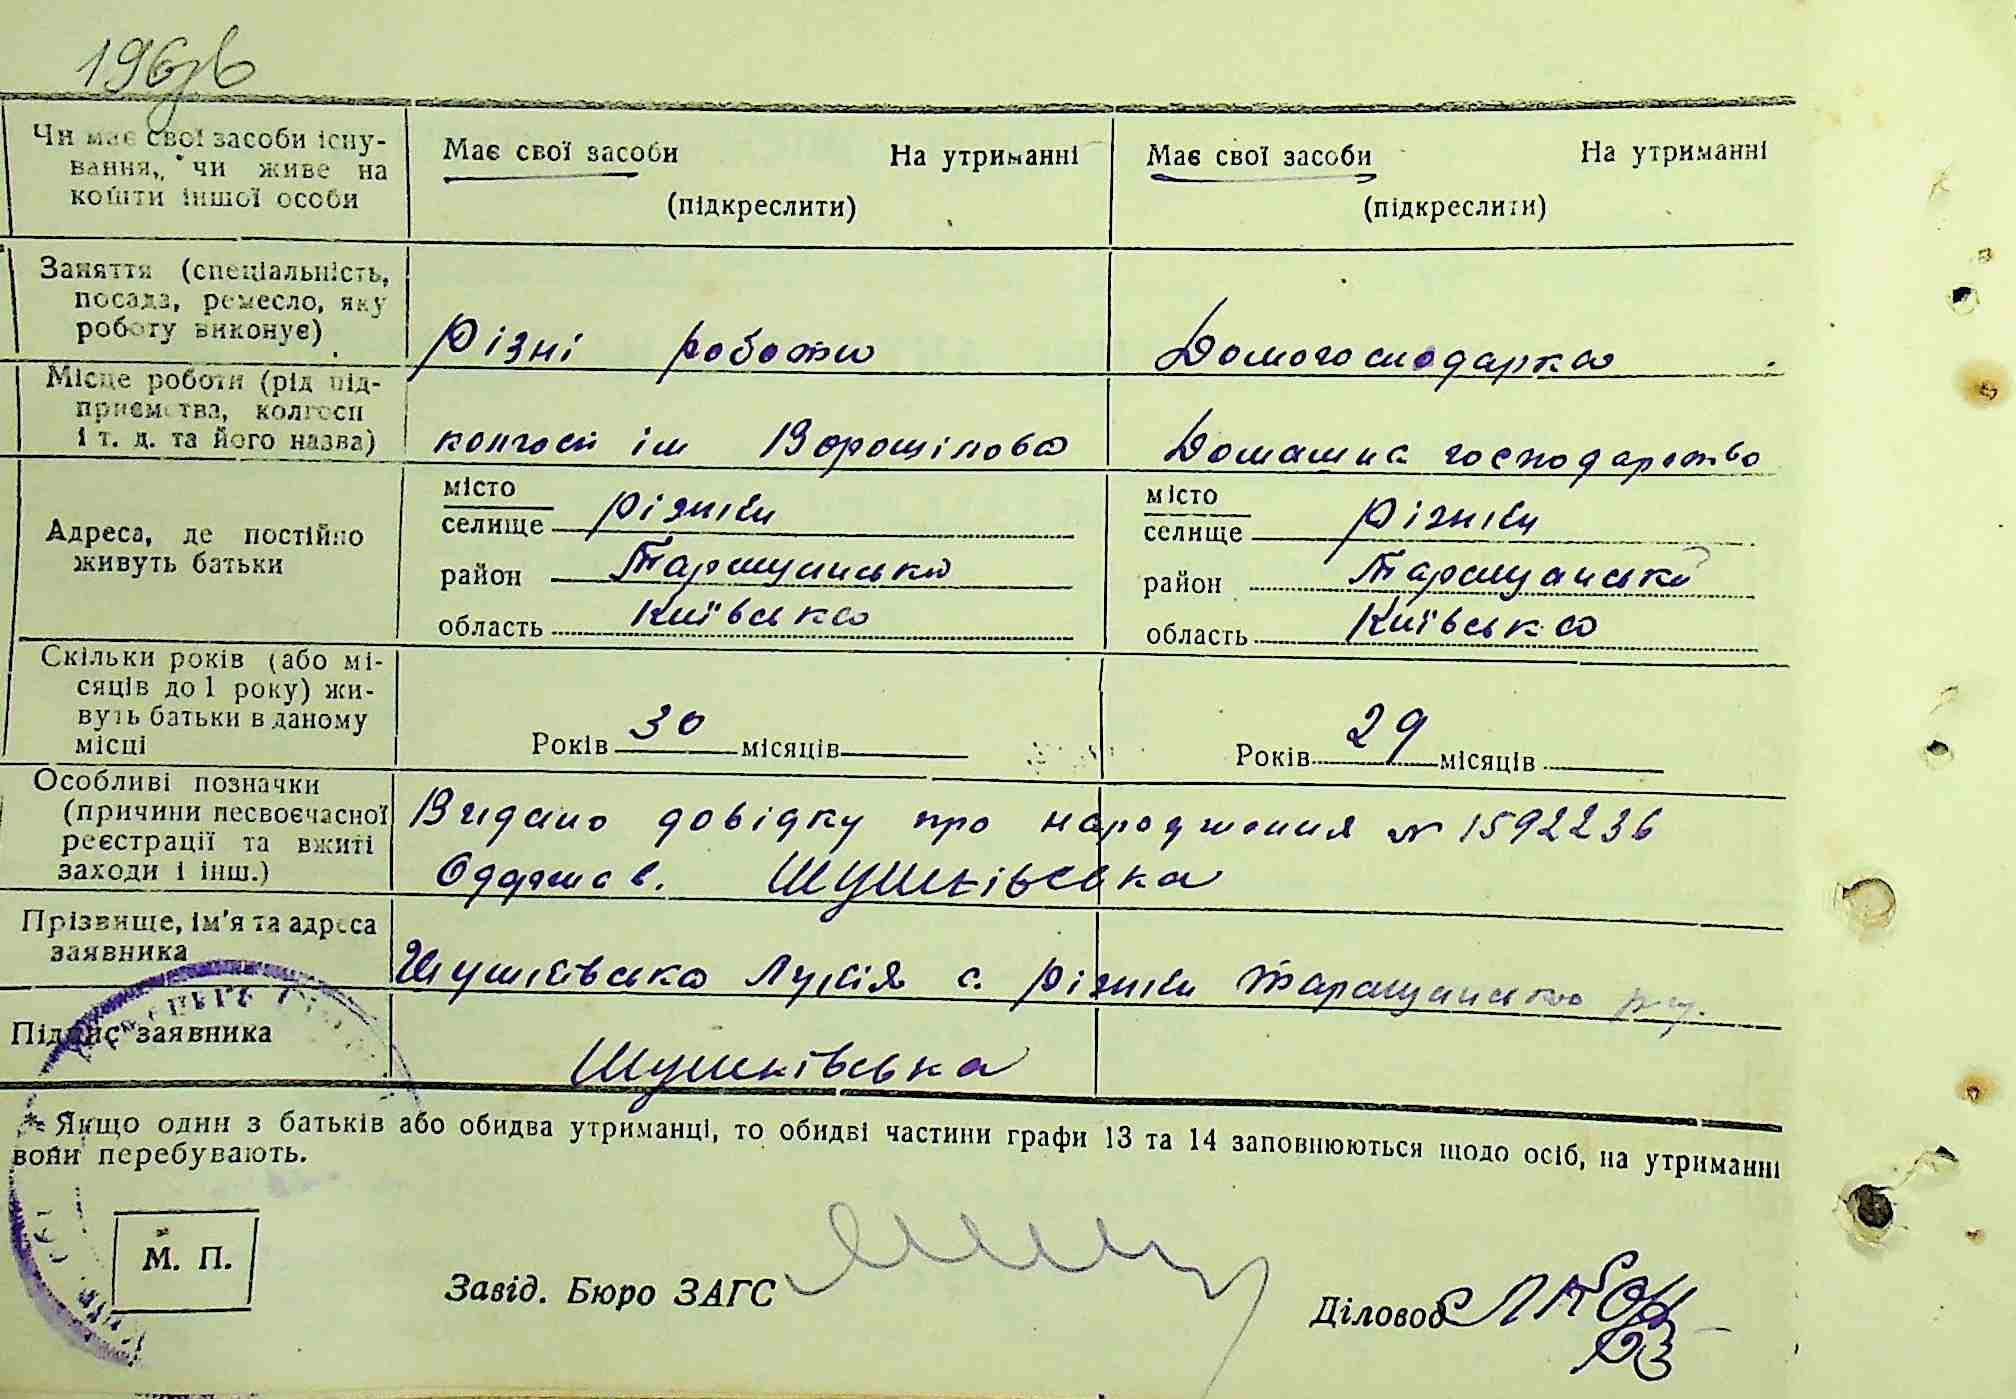 Чи має свої засоби існу-
вання, чи живе на
кошти іншої особи
Має свої засоби На утриманні
(підкреслити)
Має свої засоби На утриманні
(підкреслити)
Заняття (спеціальність,
посада, ремесло, яку
роботу виконує)
Різні роботи
Домогосподарка
Місце роботи (рід під-
приємства, колгосп
і т. д. та його назва)
колгосп ім Ворошілова
Домашнє господарство
Адреса, де постійно
живуть батьки
місто
селище Різники
район Таращанська
область Київська
місто
селище Різники
район Таращанська
область Київська
Скільки років (або мі-
сяців до 1 року) жи-
вуть батьки в даному
місці
Років 30 місяців
Років 29 місяців
Особливі позначки
(причини несвоєчасної
реєстрації та вжиті
заходи і інш.)
Видано довідку про народження № 1592236
Одержав. Шушківська
Прізвище, ім'я та адреса
заявника
Шушківська Лукія с. Різники Таращансько
Підпис заявника
Шушківська
* Якщо один з батьків або обидва утриманці, то обидві частини графи 13 та 14 заповнюються щодо осіб, на утриманні
вони перебувають.
М. П.
Завід. Бюро ЗАГС
Діловод